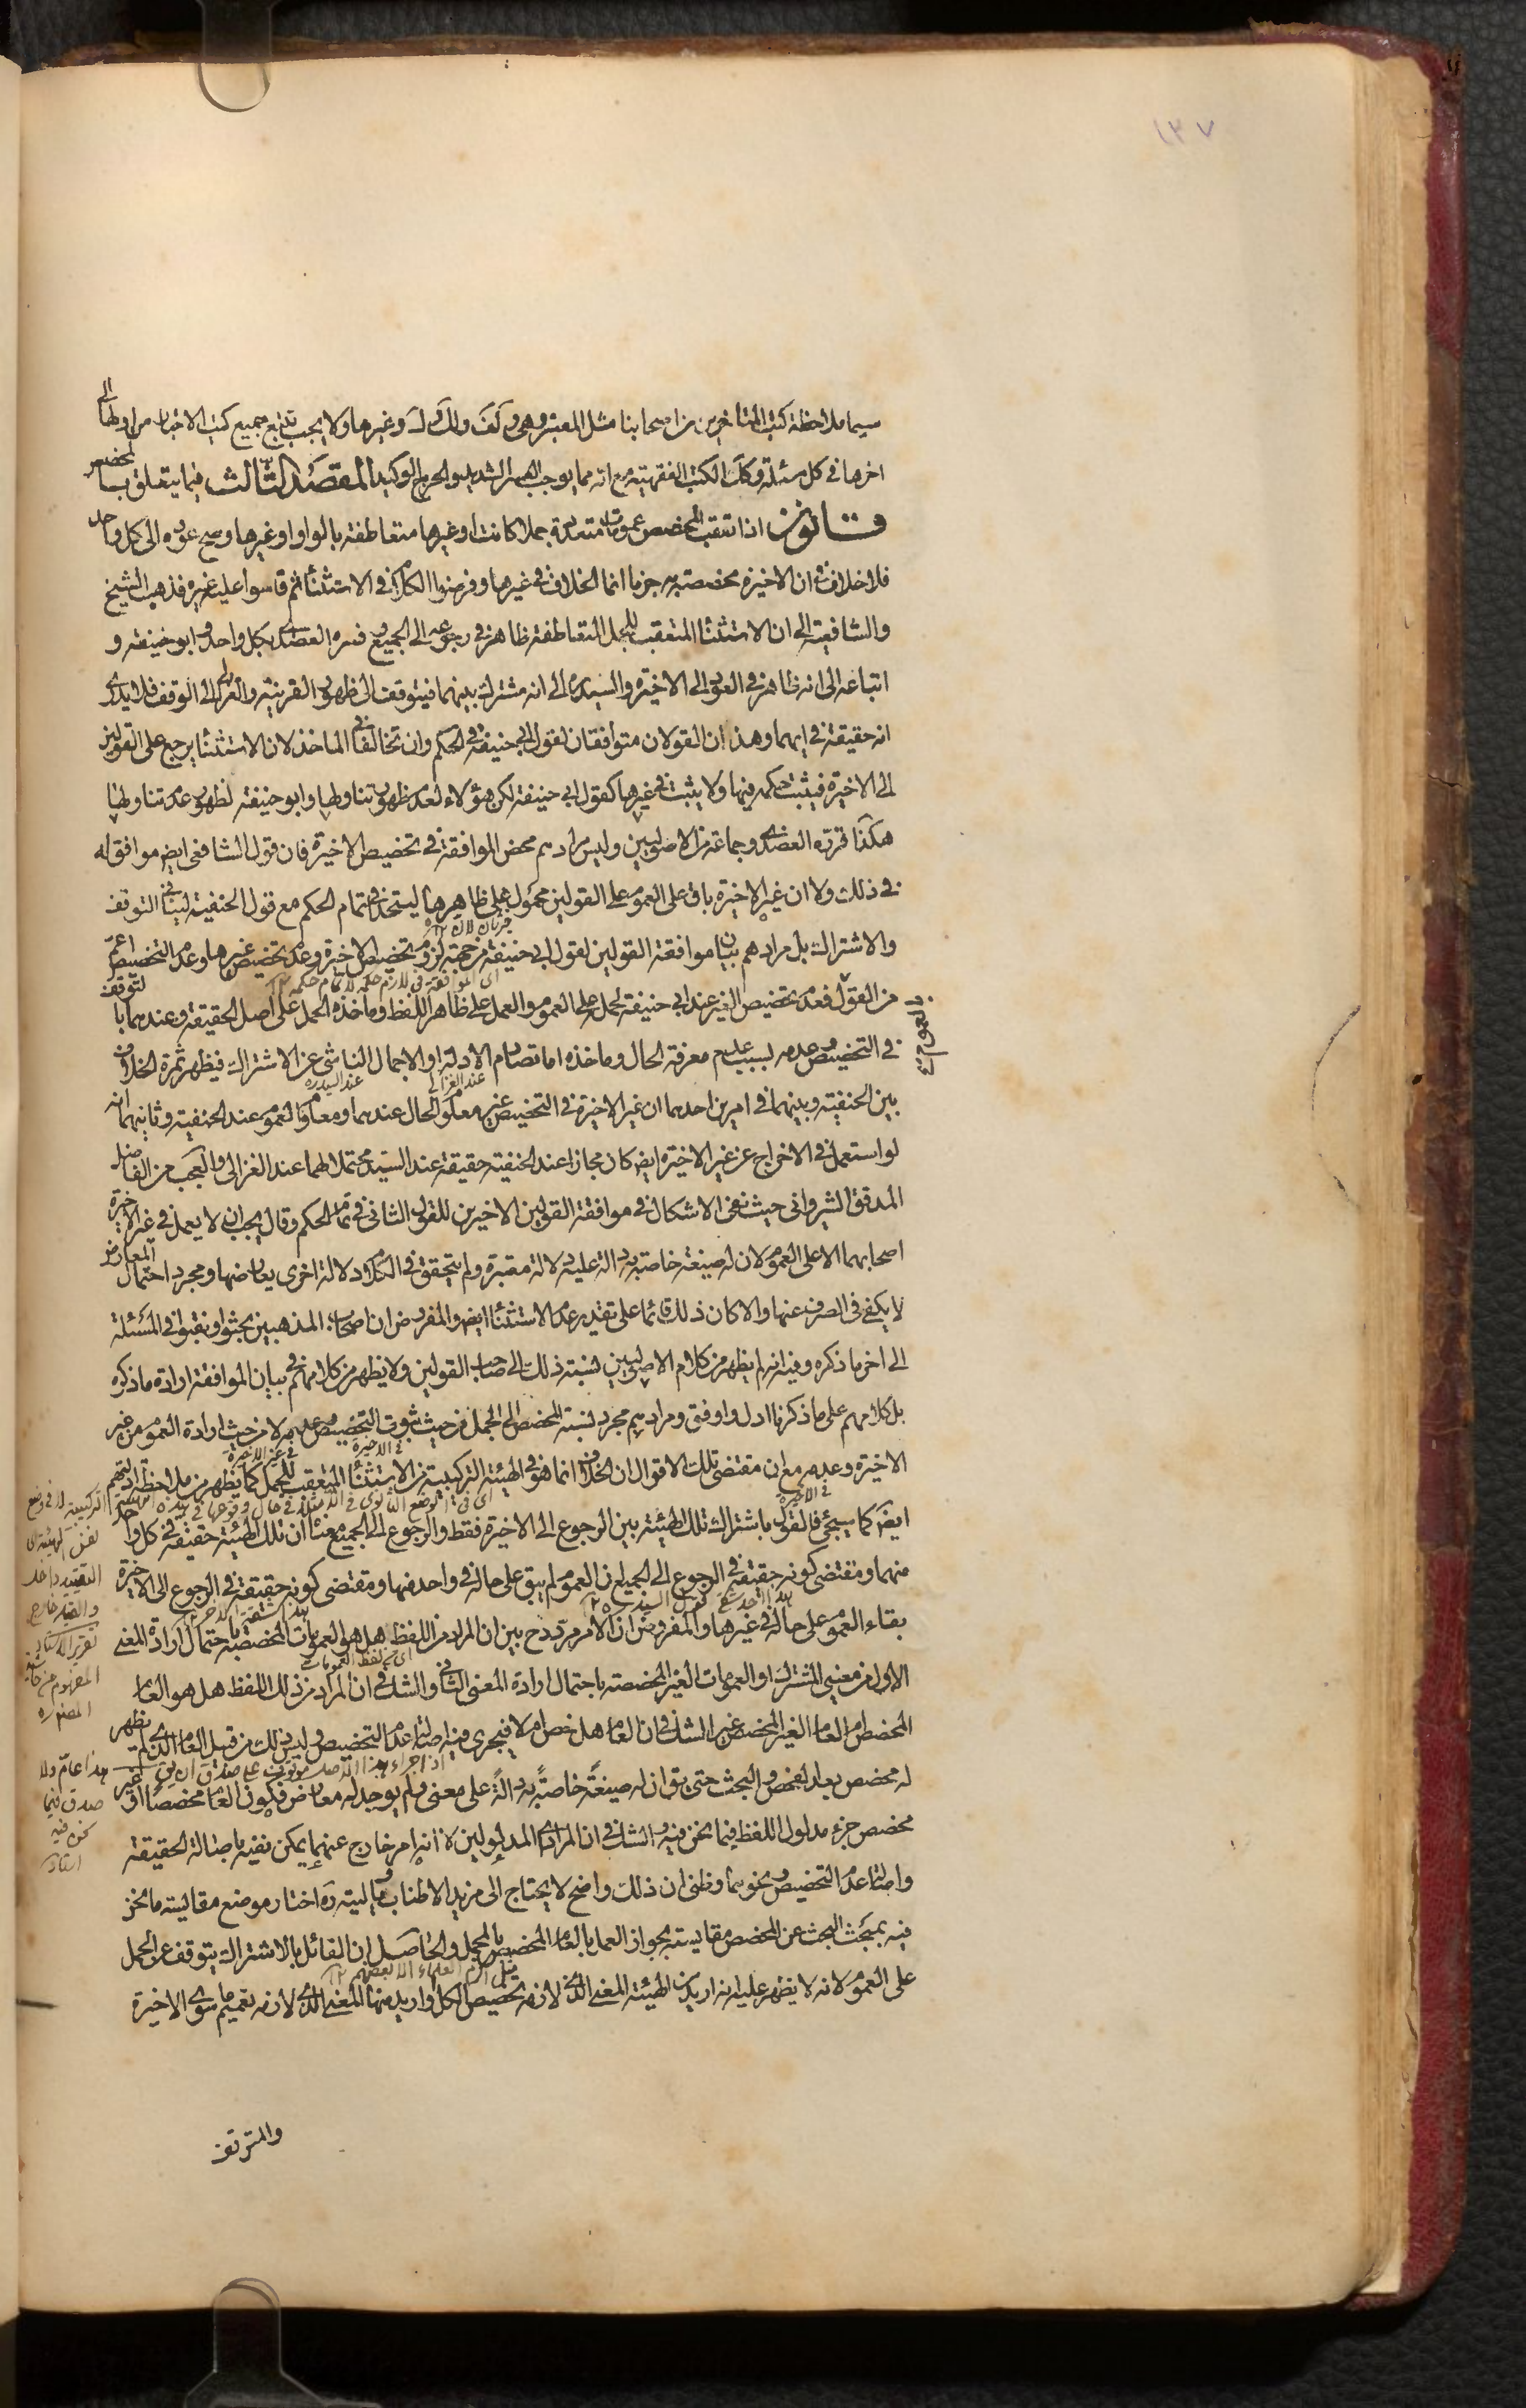 ١٣٧
سيما ملاحظة كتب المتاخرين من اصحابنا مثل المعتبر وهى و لف ولك و غيرها ولا يجب تتبع جميع كتب الاخبار من اولها الى
اخرها فى كل مسئلة وكك الكتب الفقهية مع انه مما يوجب العسر الشديد والحرج الوكيد المقصد الثالث فيما يتعلق بالمخصص
قانون اذا تعقب المخصص عمومات متعددة جملا كانت او غيرها متعاطفة بالواو او غيرها وصح عوده الى كل واحد
فلا خلاف فى ان الاخيرة مخصصة به جزما انما الخلاف فى غيرها وفرضوا الكلام فى الاستثناء ثم قاسوا عليه غيره فذهب الشيخ
والشافعية الى ان الاستثناء المتعقب للجمل المتعاطفة ظاهر فى رجوعه الى الجميع وفسره العضدى بكل واحد وابو حنيفة و
اتباعه الى انه ظاهر فى العود الى الاخيرة والسيد ره الى انه مشترك بينهما فيتوقف الى ظهور القرينة والغزالى الى الوقف فلا يدرى
انه حقيقة فى ايهما وهذان القولان متوافقان لقول ابى حنيفة فى الحكم وان تخالفا فى الماخذ لان الاستثناء يرجع على القولين
الى الاخيرة فيثبت حكمه فيها ولا يثبت فى غيرها كقول ابى حنيفة لكن هؤلاء لعدم ظهور تناولها وابو حنيفة لظهور عدم تناولها
هكذا قرره العضدى وجماعة من الاصوليين وليس مرادهم محض الموافقة فى تخصيص الاخيرة فان قول الشافعى ايض موافق له
فى ذلك ولا ان غير الاخيرة باق على العموم على القولين محمول على ظاهرها ليتحد فى تمام الحكم مع قول الحنفية لينافى التوقف
والاشتراك بل مرادهم بيان موافقة القولين لقول ابى حنيفة من جهة لزوم تخصيص الاخيرة وعدم تخصيص غيرها وعدم التخصيص اعم
اى الموافقة فى لازم حكمه لا تمام حكمه ١٢
من القول بالعموم فعدم تخصيص الغير عند ابى حنيفة لحمله على العموم والعمل على ظاهر اللفظ وماخذه الحمل على اصل الحقيقة وعندهما بالتوقف
فى التخصيص وعدمه بسبب عدم معرفة الحال وماخذه اما تصادم الادلة او الاجمال الناشى عن الاشتراك فيظهر ثمرة الخلاف
عند الغزالى عند السيد ره
بين الحنفية وبينهما فى امرين احدهما ان غير الاخيرة فى التخصيص غير معلوم الحال عندهما ومعلوم العموم عند الحنفية وثانيهما انه
لو استعمل فى الاخراج عن غير الاخيرة ايض كان مجازا عند الحنفية حقيقة عند السيد محتملا لهما عند الغزالى والعجب من الفاضل
المدقق الشروانى حيث نفى الاشكال فى موافقة القولين الاخيرين للقول الثانى فى تمام الحكم وقال يجب ان لا يعمل فى غير الاخيرة
اصحابهما الا على العموم لان له صيغة خاصة به دالة عليه دلالة معتبرة ولم يتحقق فى الكلام دلالة اخرى يعارضها ومجرد احتمال المعارض
لا يكفى فى الصرف عنها والا كان ذلك قائما على تقدير عدم الاستثناء ايض والمفروض ان اصحاب المذهبين بحثوا ونقبوا فى المسئلة
الى اخر ما ذكره وفيه انه لم يظهر من كلام الاصوليين نسبة ذلك الى صاحب القولين ولا يظهر من كلامهم فى بيان الموافقة ارادة ما ذكره
بل كلامهم على ما ذكرنا ادل واوفق ومرادهم مجرد نسبة المخصص الى الجمل من حيث ثبوت التخصيص وعدمه لا من حيث ارادة العموم من غير
فى الاخيرة فى غير الاخيرة
الاخيرة وعدمه مع ان مقتضى تلك الاقوال ان الخلاف انما هو فى الهيئة التركيبية من الاستثناء المتعقب للجمل كما يظهر من ملاحظة ادلتهم
ايض كما سيجئ فالقول باشتراك تلك الهيئة بين الرجوع الى الاخيرة فقط والرجوع الى الجميع معناه ان تلك الهيئة حقيقة فى كل واحد
منهما ومقتضى كونه حقيقة فى الرجوع الى الجميع ان العموم لم يبق على حاله فى واحد منها ومقتضى كونه حقيقة فى الرجوع الى الاخيرة
بقاء العموم على حاله فى غيرها والمفروض ان الامر مردد ح بين ان المراد من اللفظ هل هو العمومات المخصصة باحتمال ارادة المعنى
اى من لفظ العمومات
الاول من معنيى المشترك او العمومات الغير المخصصة باحتمال ارادة المعنى الثانى والشك فى ان المراد من ذلك اللفظ هل هو العام
المخصص ام العام الغير المخصص غير الشك فى ان العام هل خص ام لا فيجرى فيه اصالة عدم التخصيص وليس ذلك من قبيل العام الذى لم يظهر
اذ اجراء هذا الاصل موقوف على صدق ان يق هذا عام ولا
له مخصص بعد الفحص والبحث حتى يق ان له صيغة خاصة به دالة على معنى ولم يوجد له معارض فكون العام مخصصا او غير
مخصص جزء مدلول اللفظ فيما نحن فيه والشك فى ان المراد اى المدلولين لا انه امر خارج عنهما يمكن نفيه باصالة الحقيقة
واصالة عدم التخصيص ونحوهما وظنى ان ذلك واضح لا يحتاج الى مزيد الاطناب وياليته ره اختار موضع مقايسة ما نحن
فيه بمبحث البحث عن المخصص مقايسته بجواز العمل بالعام المخصص بالمجمل والحاصل ان القائل بالاشتراك يتوقف عن الحمل
على العموم لانه لا يظهر عليه انه اريد من الهيئة المعنى الذى لازمه تخصيص الكل او اريد منها المعنى الذى لازمه تعميم ما سوى الاخيرة
والمتوقف